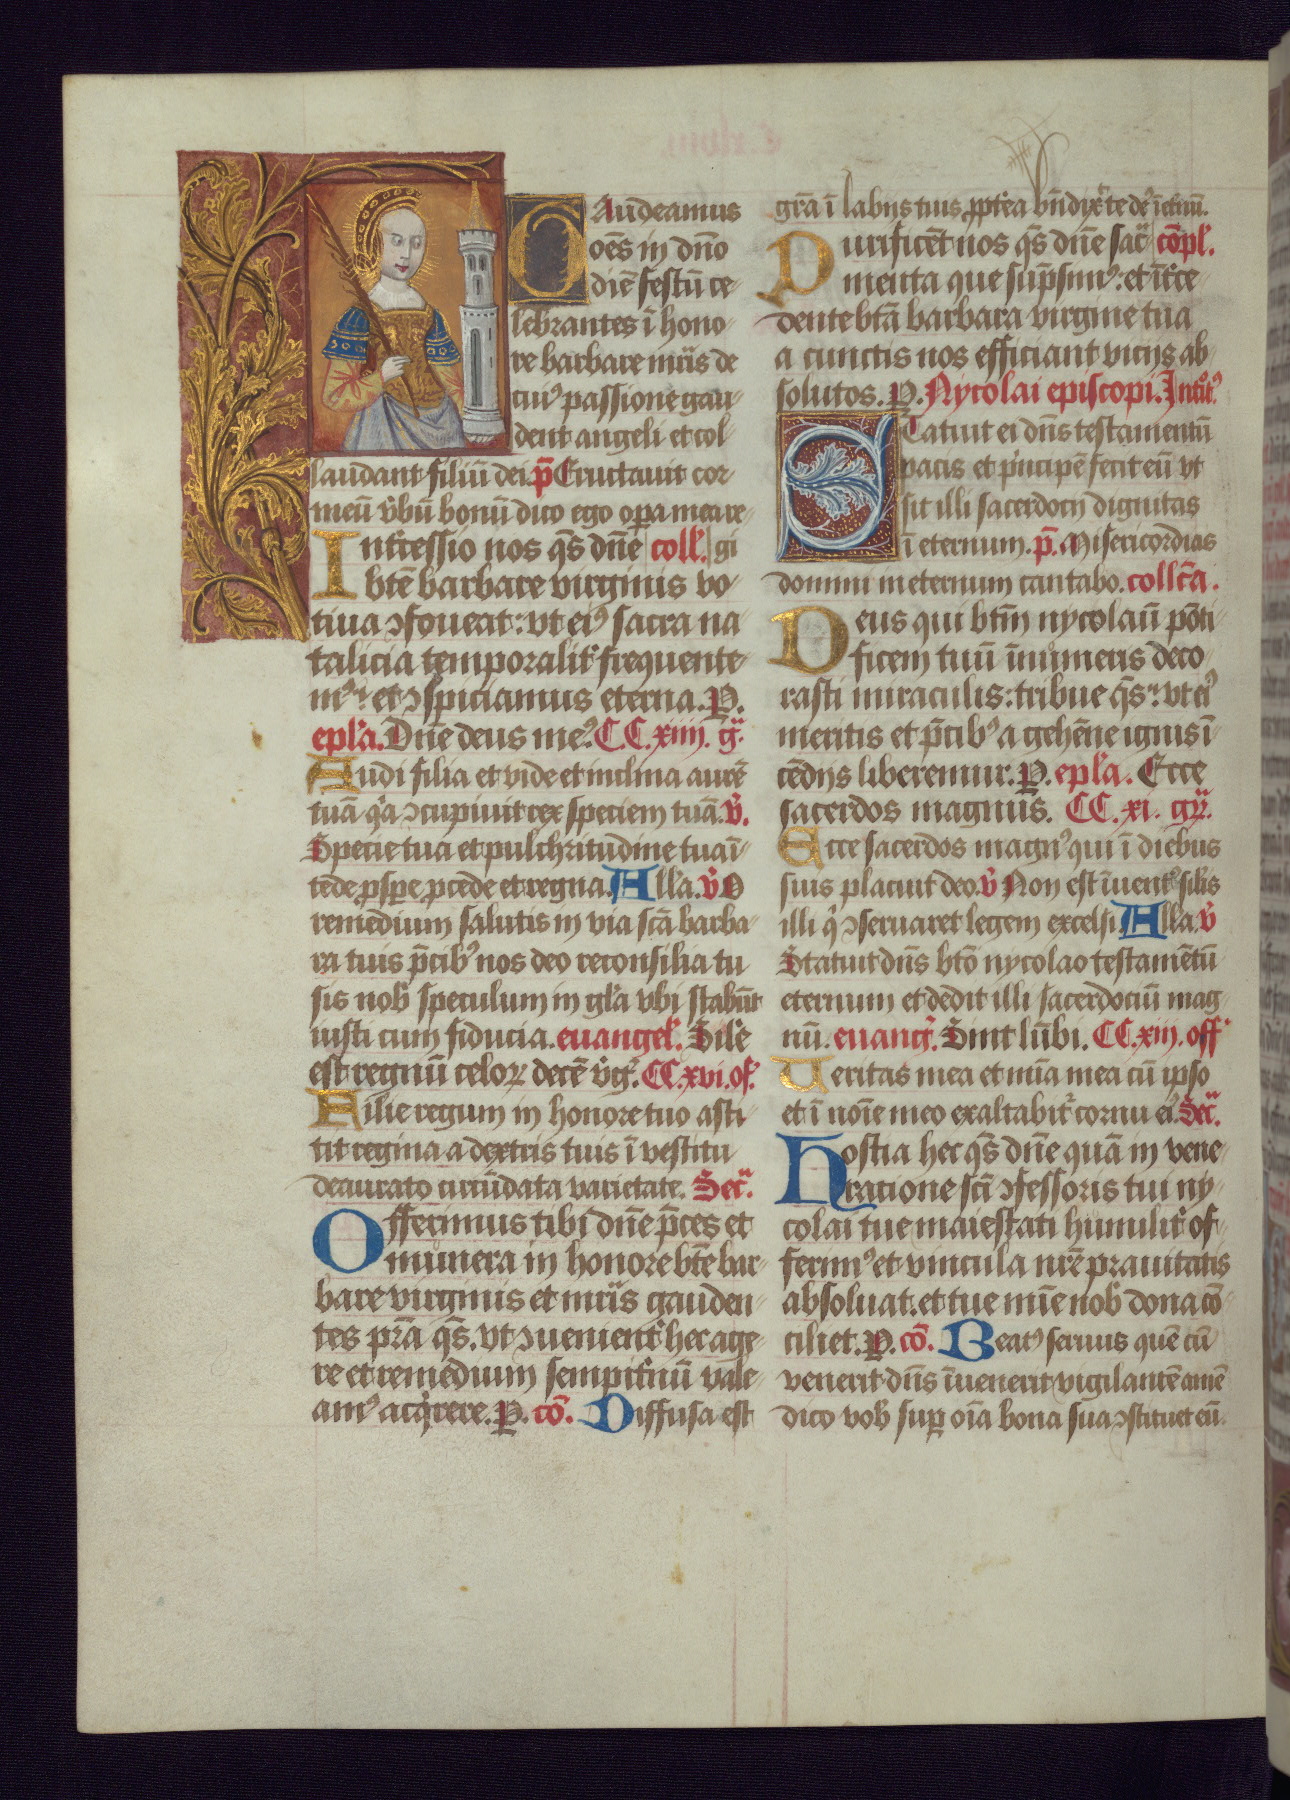 GAudeamus
oēs in dn̄o
diē festū ce-
lebrantes ī hono-
re barbare mr̄is de
cui⁹ passione gau-
dent angeli et col-
laudant filiū dei. p̄ Eructauit cor
meū v̓bū bonū dico ego opera mea re-
Intercessio nos q̄s dn̄e coll'. gi
btē barbare virginis vo-
tiua ꝯfoueat: vt ei⁹ sacra na-
talicia temporalit᷑ frequente-
m⁹: et ꝯspiciamus eterna. P.
epl'a. Dn̄e deus me⁹. CC. xiiii. gͣ.
Audi filia et vide et inclina aurē
tuā q̓a ꝯcupiuit rex speciem tuā. v̓.
Specie tua et pulchritudine tua ī-
tēde ꝓspe ꝓcede et regna. All'a. v̓ O
remedium salutis in via sc̄a barba-
ra tuis p̄cib⁹ nos deo reconsilia tu
sis nob̓ speculum in gl'a vbi stabūt
iusti cum fiducia. euangel'. Sile
est regnū celoꝝ decē v̓g̓. CC. xvi. of.
Filie regum in honore tuo asti-
tit regina a dextris tuis ī vestitu
deaurato circūdata varietate. Secͣ.
Offerimus tibi dn̄e p̄ces et
munera in honore btē bar-
bare virginis et mr̄is gauden-
tes prā q̄s. vt ꝯuenient᷑ hec age-
re et remedium sempit᷑nū vale-
am⁹ acq̓rere. P. cō. Diffusa est
gr̄a ī labijs tuis ꝓpt᷑ea bn̄dix̓ te de⁹ ī et᷑nū.
Purificēt nos q̄s dn̄e sacͣ cōpl'.
menta que sūpsim⁹: et īt᷑ce-
dente btā barbara virgine tua
a cunctis nos efficiant vicijs ab-
solutos. P. Nycolai episcopi. Introit⁹
STatuit ei dn̄s testamentū
pacis et p̓ncipē fecit eū vt
sit illi sacerdocij dignitas
ī eternum. p̄. Misericordias
domini in eternum cantabo. collc̄a.
Deus qui btm̄ nycolaū pōti-
ficem tuū īnumeris deco-
rasti miraculis: tribue q̄s: vt ei⁹
meritis et p̄cib⁹ a gehēne ignis ī-
cēdijs liberemur. P. epl'a. Ecce
sacerdos magnus. CC. xi. gr̄.
Ecce sacerdos magn⁹ qui ī diebus
suis placuit deo. v̓ Non est īuent⁹ sil̓is
illi q̓ ꝯseruaret legem excelsi. All'a. v̓
Statuit dn̄s btō nycolao testamētū
eternum et dedit illi sacerdociū mag-
nū. euang̓. Sint lūbi. CC. xiij. off
Ueritas mea et mīa mea cū ipso
et ī noīe meo exaltabit᷑ cornu ei⁹. Secͣ.
Hostia hec q̄s dn̄e quā in vene-
ratione sc̄i ꝯfessoris tui ny-
colai tue maiestati humilit᷑ of-
ferim⁹ et vincula nr̄e prauitatis
absoluat. et tue mīe nob̓ dona cō-
ciliet. P. cō. Beat⁹ seruus quē cū
venerit dn̄s īuenerit vigilantē amē
dico vob̓ suꝑ oīa bona sua ꝯstituet eū.